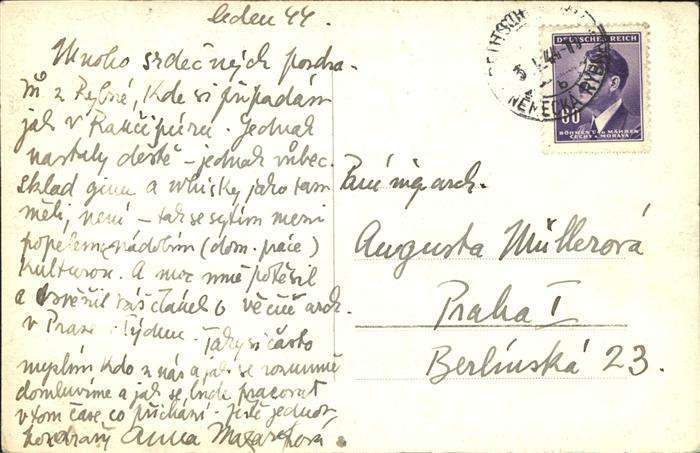 leden 44.
Mnoho srdečných pozdra-
vů z Rybné, kde si připadám
jak v Jednak
nastaly deště – jednak vůbec.
sklad ginu a whisky, jako tam
měli, není – tak se sytím mezi
popelem, nádobím (dom. práce)
kulturou. A moc mně potěšil
a osvěžil váš článek o věčné arch.
v Praze – Týden. Taky si často
myslím kdo z nás a jak se rozumně
domluvíme a jak se bude pracovat
v tom čase co přichází. Ještě jednou
pozdravy Anna
DEUTSCHES REICH
60
BÖHMEN UND MÄHREN
ČECHY A MORAVA
NĚMECKÁ RYBNÁ
Paní ing arch.
Augusta Müllerová
Praha I
Berlínská 23.